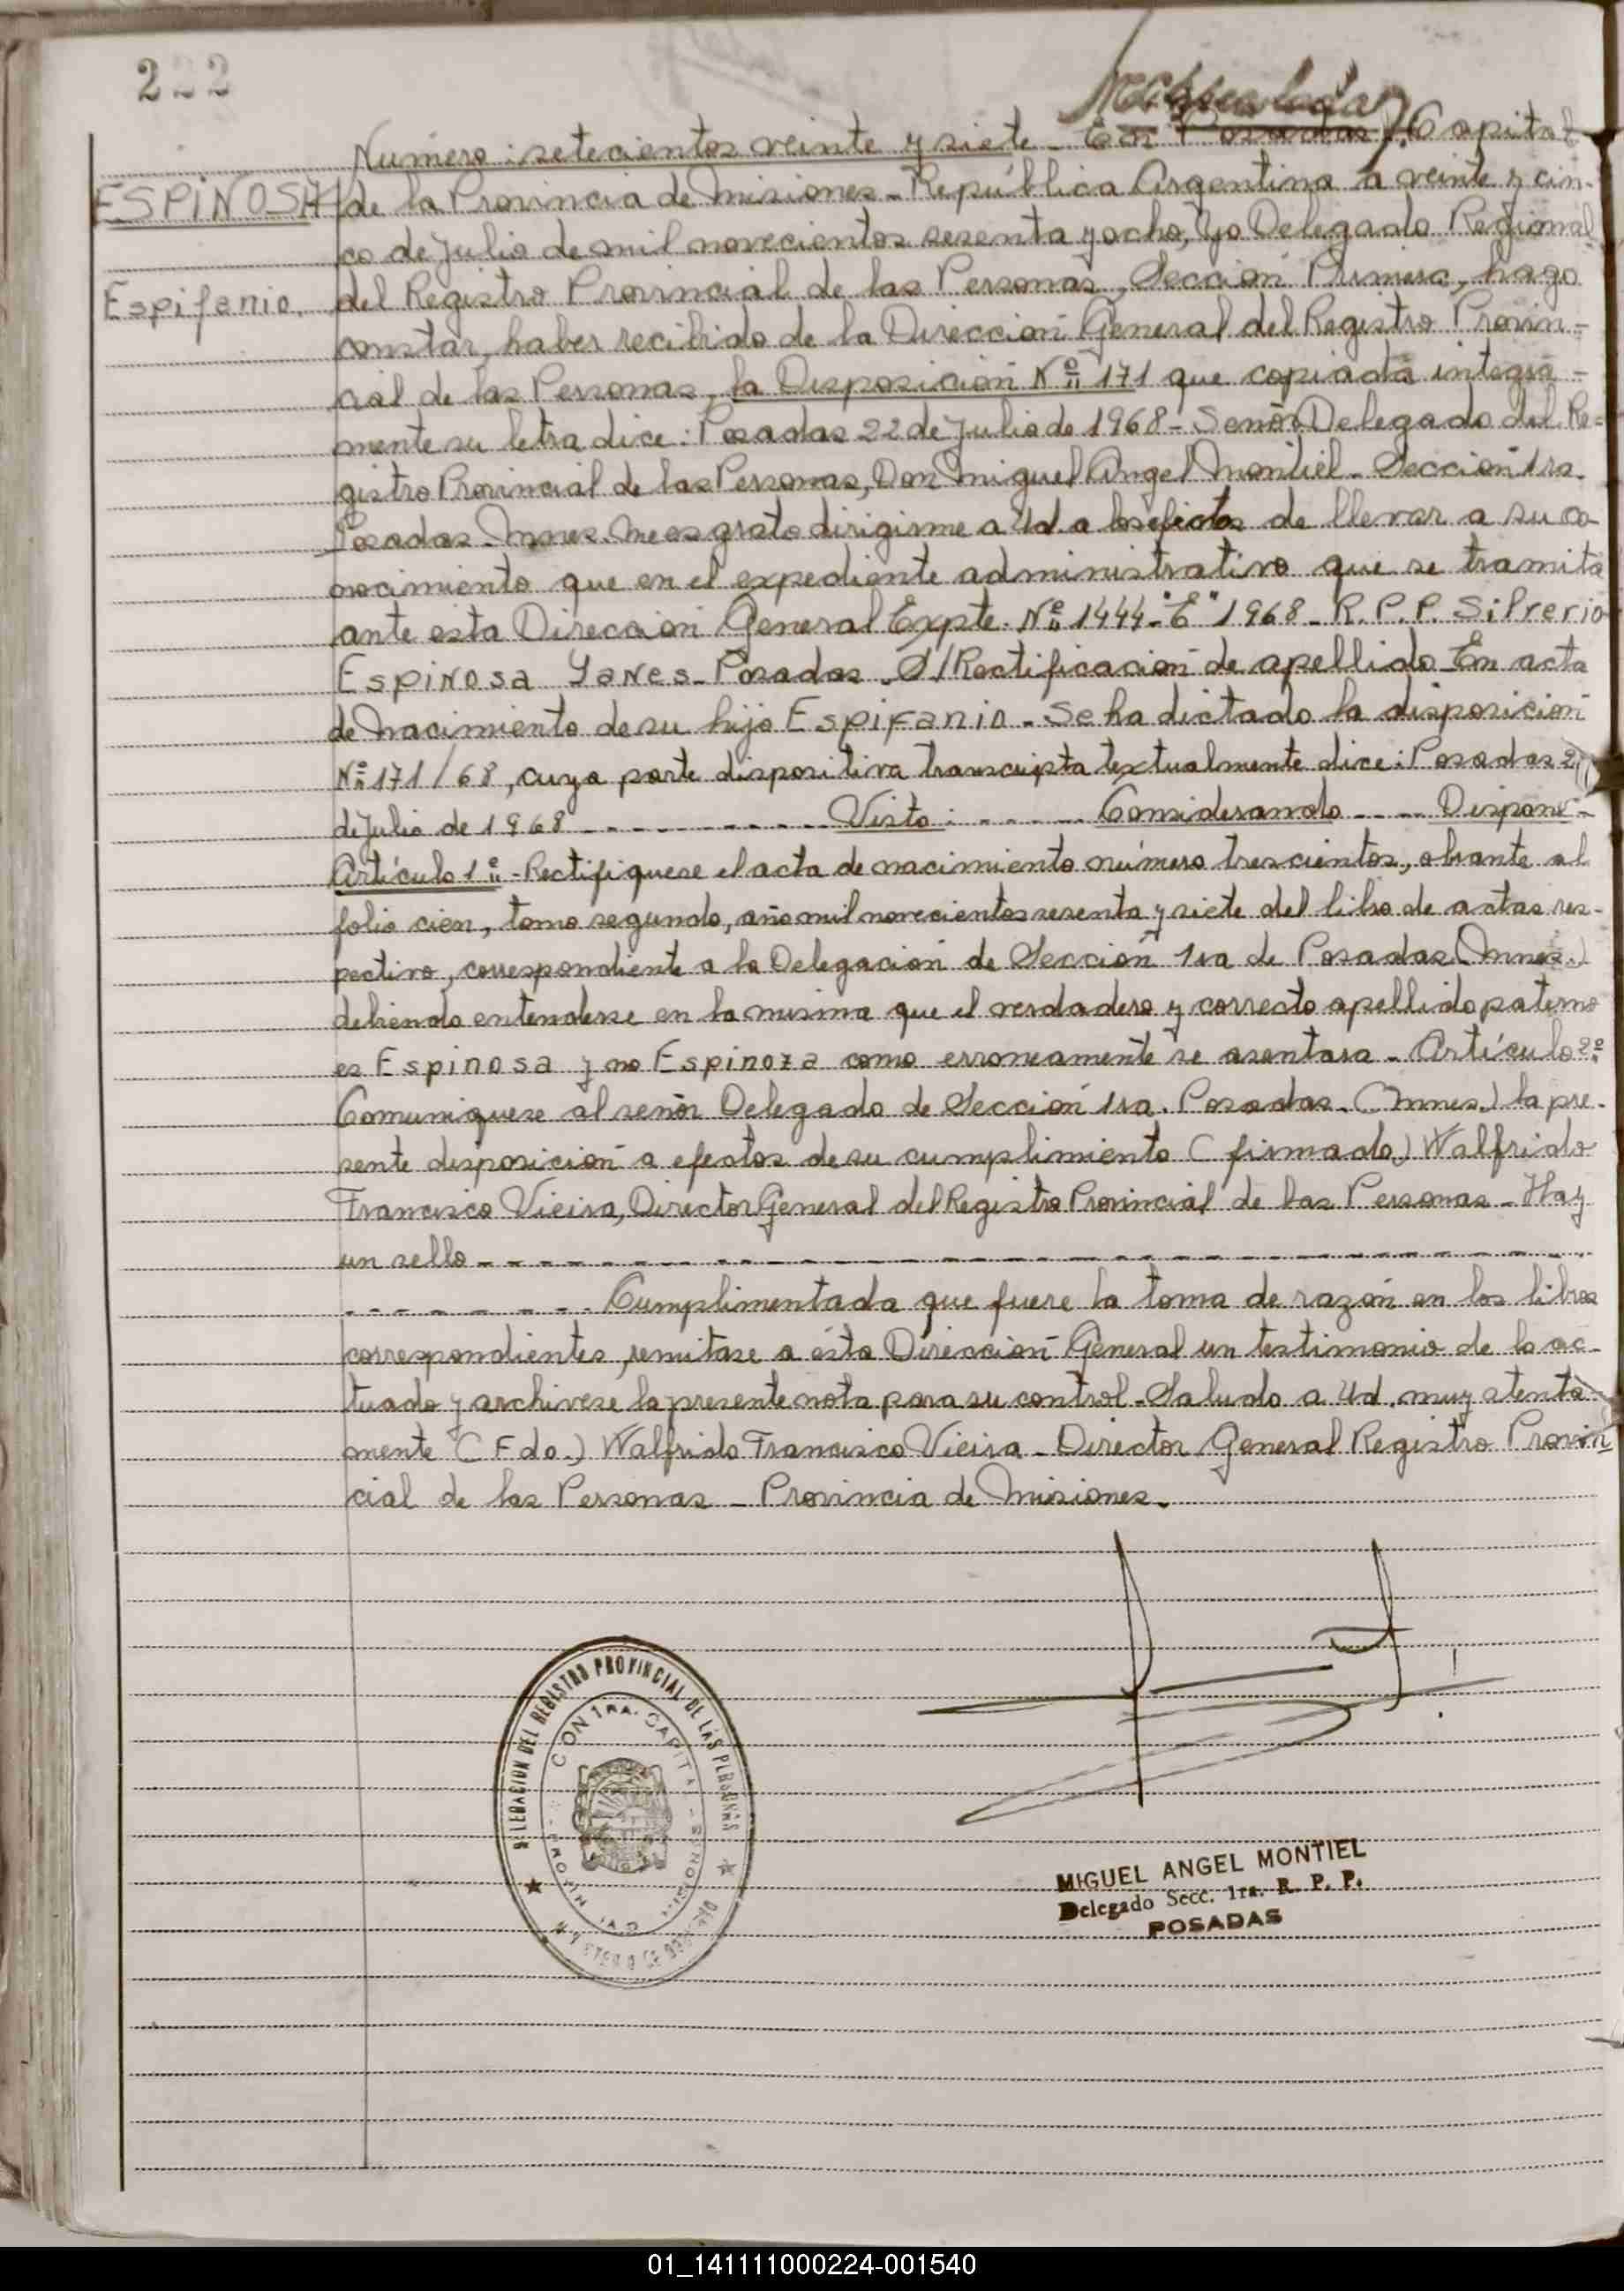 222
Número: setecientos veinte y siete - En Posadas, Capital
ESPINOSA
de la Provincia de Misiones - República Argentina a veinte y cin-
co de Julio de mil novecientos sesenta y ocho, Yo Delegado Regional
Espifanio.
del Registro Provincial de las Personas, Sección Primera, hago
constar, haber recibido de la Dirección General del Registro Provin-
cial de las Personas, la Disposición Nº 171 que copiada integra-
mente su letra dice: Posadas 22 de Julio de 1968 - Señor Delegado del Re-
gistro Provincial de las Personas, Don Miguel Angel Montiel - Sección 1ra.
Posadas - Mnes. Me es grato dirigirme a Ud. a los efectos de llevar a su co-
nocimiento que en el expediente administrativo que se tramita
ante esta Dirección General Expte. Nº 1444-"E" 1968 - R.P.P. Silverio
Espinosa Yanes - Posadas - S/Rectificación de apellido - En acta
de nacimiento de su hijo Espifanio - Se ha dictado la disposición
Nº 171/68, cuya parte dispositiva transcripta textualmente dice: Posadas 2
de Julio de 1968 - - - - - - - - - - Visto: - - - - - Considerando - - - - Dispone-
Artículo 1º - Rectifiquese el acta de nacimiento número trescientos, obrante al
folio cien, tomo segundo, año mil novecientos sesenta y siete del libro de actas res-
pectivo, correspondiente a la Delegación de Sección 1ra de Posadas (Mnes.)
debiendo entenderse en la misma que el verdadero y correcto apellido paterno
es Espinosa y no Espinoza como erroneamente se asentara - Artículo 2º
Comuniquese al señor Delegado de Sección 1ra. Posadas. (Mnes.) la pre-
sente disposición a efectos de su cumplimiento (firmado) Walfrido
Francisco Vieira, Director General del Registro Provincial de las Personas - Hay
un sello - - - - - - - - - - - - - - - - - - - -
- - - - - - - - Cumplimentada que fuere la toma de razón en los libros
correspondientes, remitase a ésta Dirección General un testimonio de lo ac-
tuado y archivese la presente nota para su control - Saludo a Ud. muy atenta-
mente (Fdo.) Walfrido Francisco Vieira - Director General Registro Provin
cial de las Personas - Provincia de Misiones.
DELEGACION DEL REGISTRO PROVINCIAL DE LAS PERSONAS
MIGUEL ANGEL MONTIEL
Delegado Secc. 1ra. R. P. P.
POSADAS
01_141111000224-001540